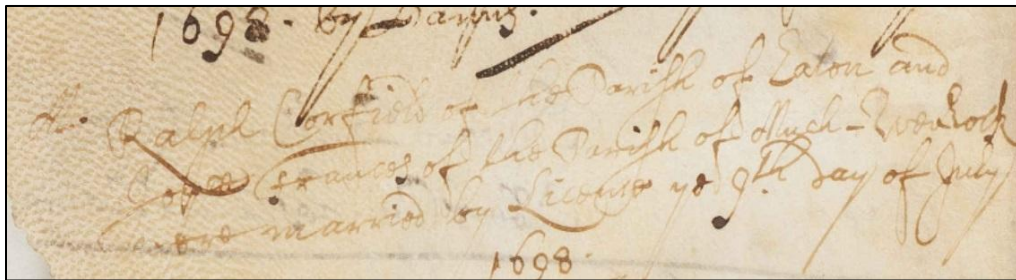 1698. by Banns.
M. Ralph Corfield of the Parish of Eaton and
Frances of the Parish of Much-Wenlock
were married by License ye 9th Day of July
1698.